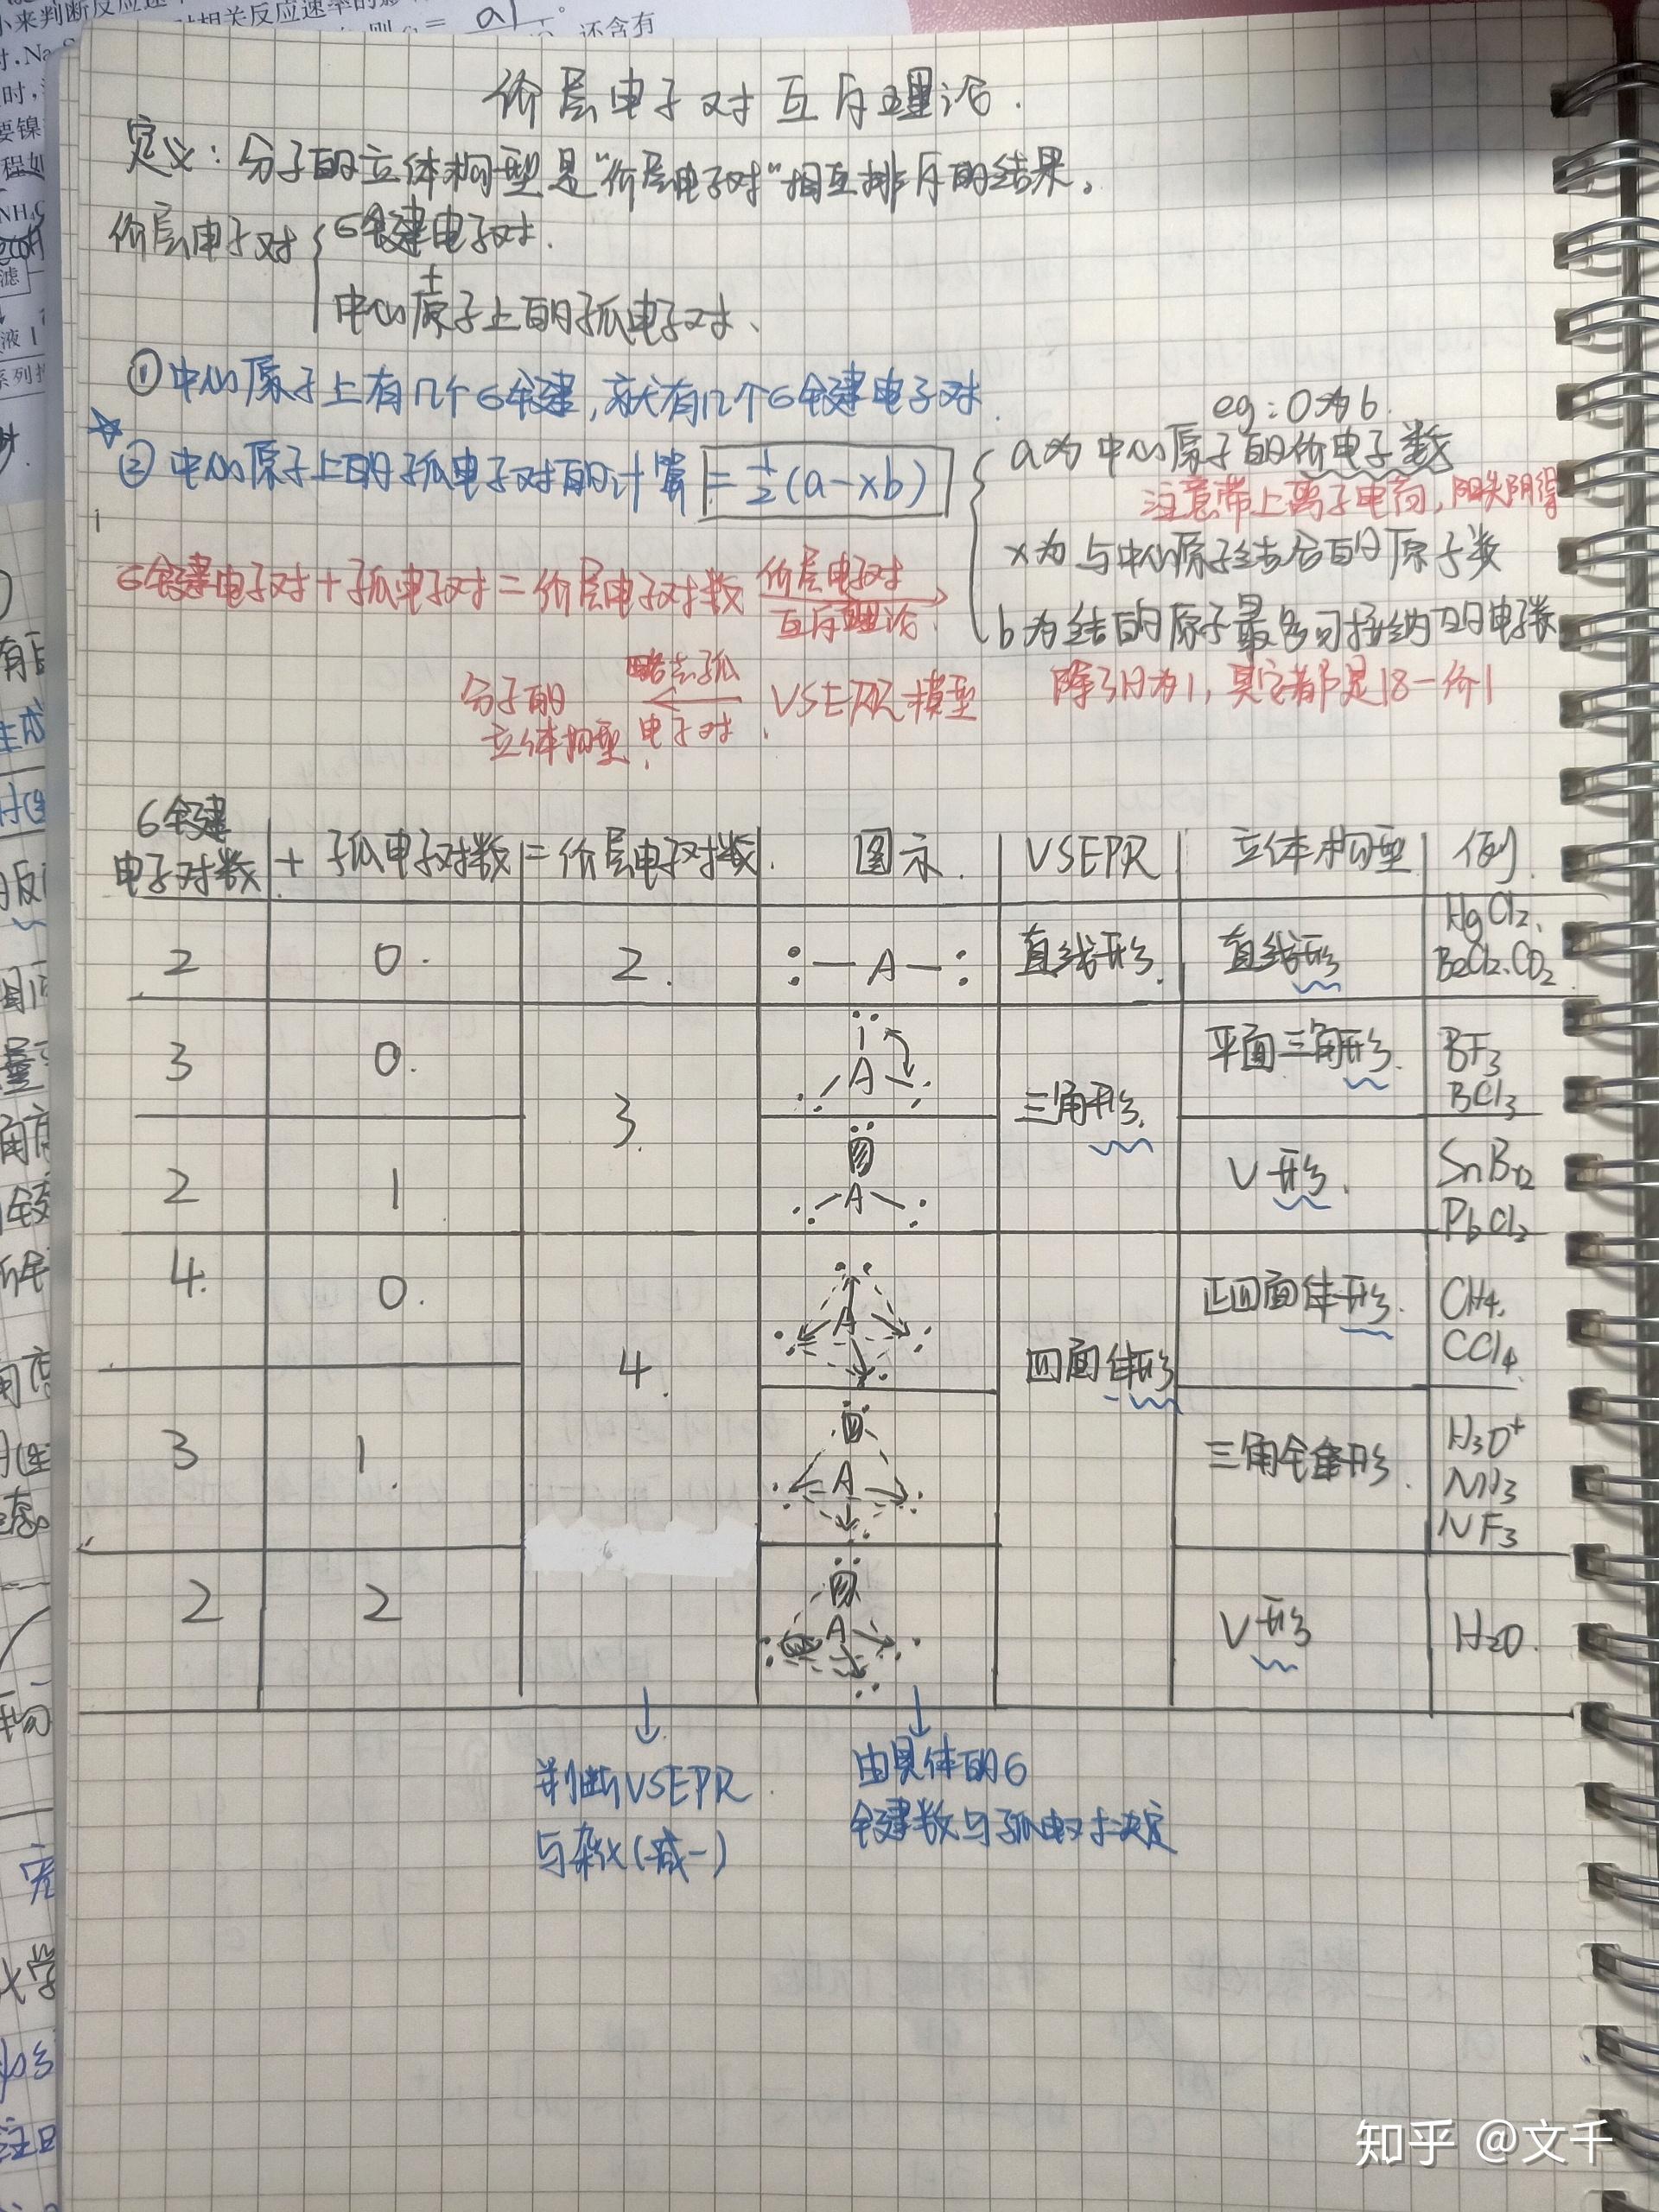 价层电子对互斥理论.
定义：分子的立体构型是“价层电子对”相互排斥的结果。
价层电子对
σ键电子对.
+
中心原子上的孤电子对、
①中心原子上有几个σ键,就有几个σ键电子对.
☆
②中心原子上的孤电子对的计算 = 1/2(a-xb)
eg:O为6.
a为中心原子的价电子数
注意带上离子电荷,阳失阴得
x为与中心原子结合的原子数
b为结的原子最多可接纳的电子数
除了H为1,其它都是18-价1
σ键电子对+孤电子对=价层电子对数 价层电子对互斥理论
VSEPR模型
略去孤电子对.
分子的立体构型.
σ键电子对数 + 孤电子对数 = 价层电子对数. 图示. VSEPR 立体构型 例.
2 0. 2. :—A—: 直线形. 直线形 HgCl2、BeCl2.CO2
3 0. 3. A 三角形. 平面三角形. BF3 BCl3
2 1 A V形. SnBr2 PbCl2
4. 0. 4. A 四面体形 正四面体形. CH4. CCl4
3 1. A 三角锥形. H3O+ NH3 NF3
2 2 A V形 H2O.
判断VSEPR
与杂化(减一)
由具体的σ
键数与孤电对决定
知乎 @文千